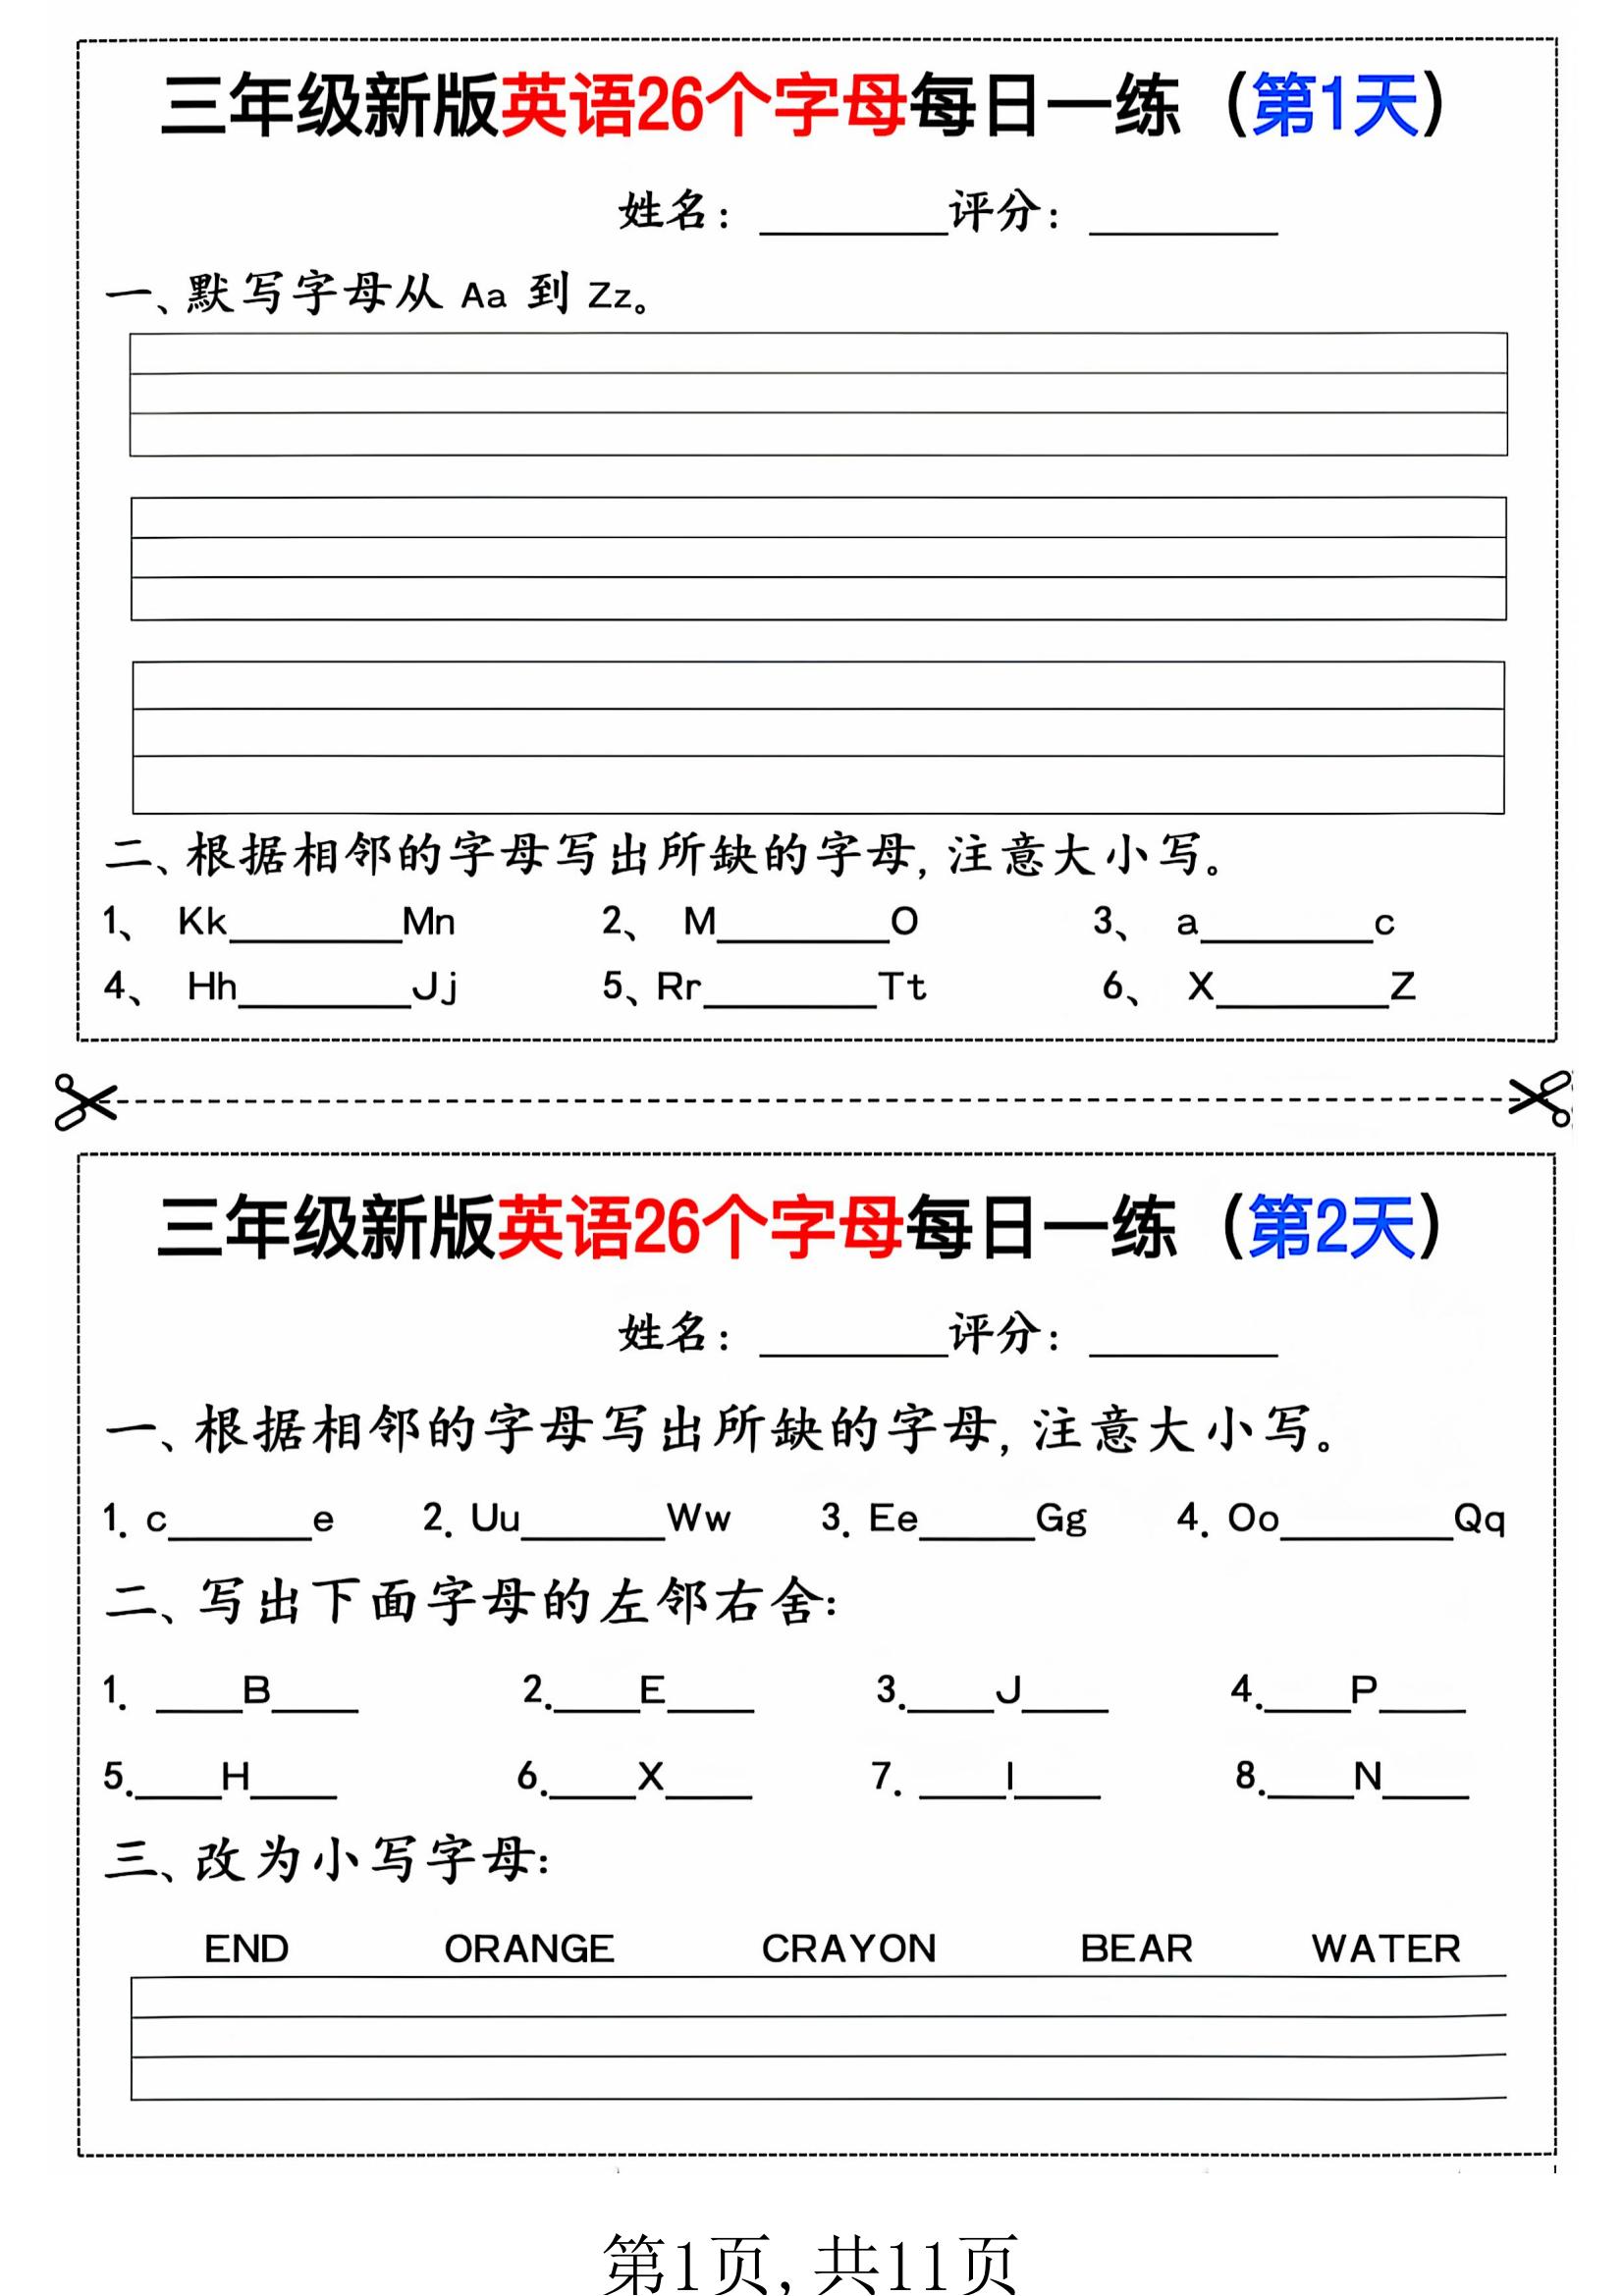 三年级新版英语26个字母每日一练（第1天）
姓名：________评分：________
一、默写字母从 Aa 到 Zz。
二、根据相邻的字母写出所缺的字母, 注意大小写。
1、 Kk________Mn 2、 M________O 3、 a________c
4、 Hh________Jj 5、Rr________Tt 6、 X________Z
三年级新版英语26个字母每日一练（第2天）
姓名：________评分：________
一、根据相邻的字母写出所缺的字母, 注意大小写。
1. c______e 2. Uu______Ww 3. Ee_____Gg 4. Oo________Qq
二、写出下面字母的左邻右舍:
1. ____B____ 2.____E____ 3.____J____ 4.____P____
5.____H____ 6.____X____ 7. ____I____ 8.____N____
三、改为小写字母:
END ORANGE CRAYON BEAR WATER
第1页, 共11页